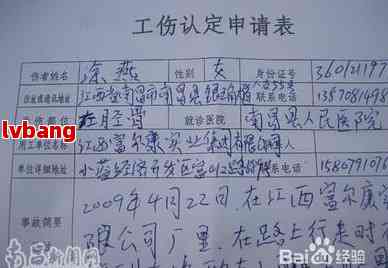 工伤认定申请表
伤者姓名 涂燕 性别 女 身份证号 360121197
住址或通讯地址 江西省南昌市南昌县 联系电话 1357081498
工伤部位 就诊医院 南昌县人民医院
用工单位名称 江西富尔康实业集团有限 联系人
单位详细地址 小蓝经济开发区富山 联系电话 15807910
事故简要 2009年4月22日,在江西富尔康实
限公司厂里,在路上行走时
lvbang
南昌新闻网
Baidu经验